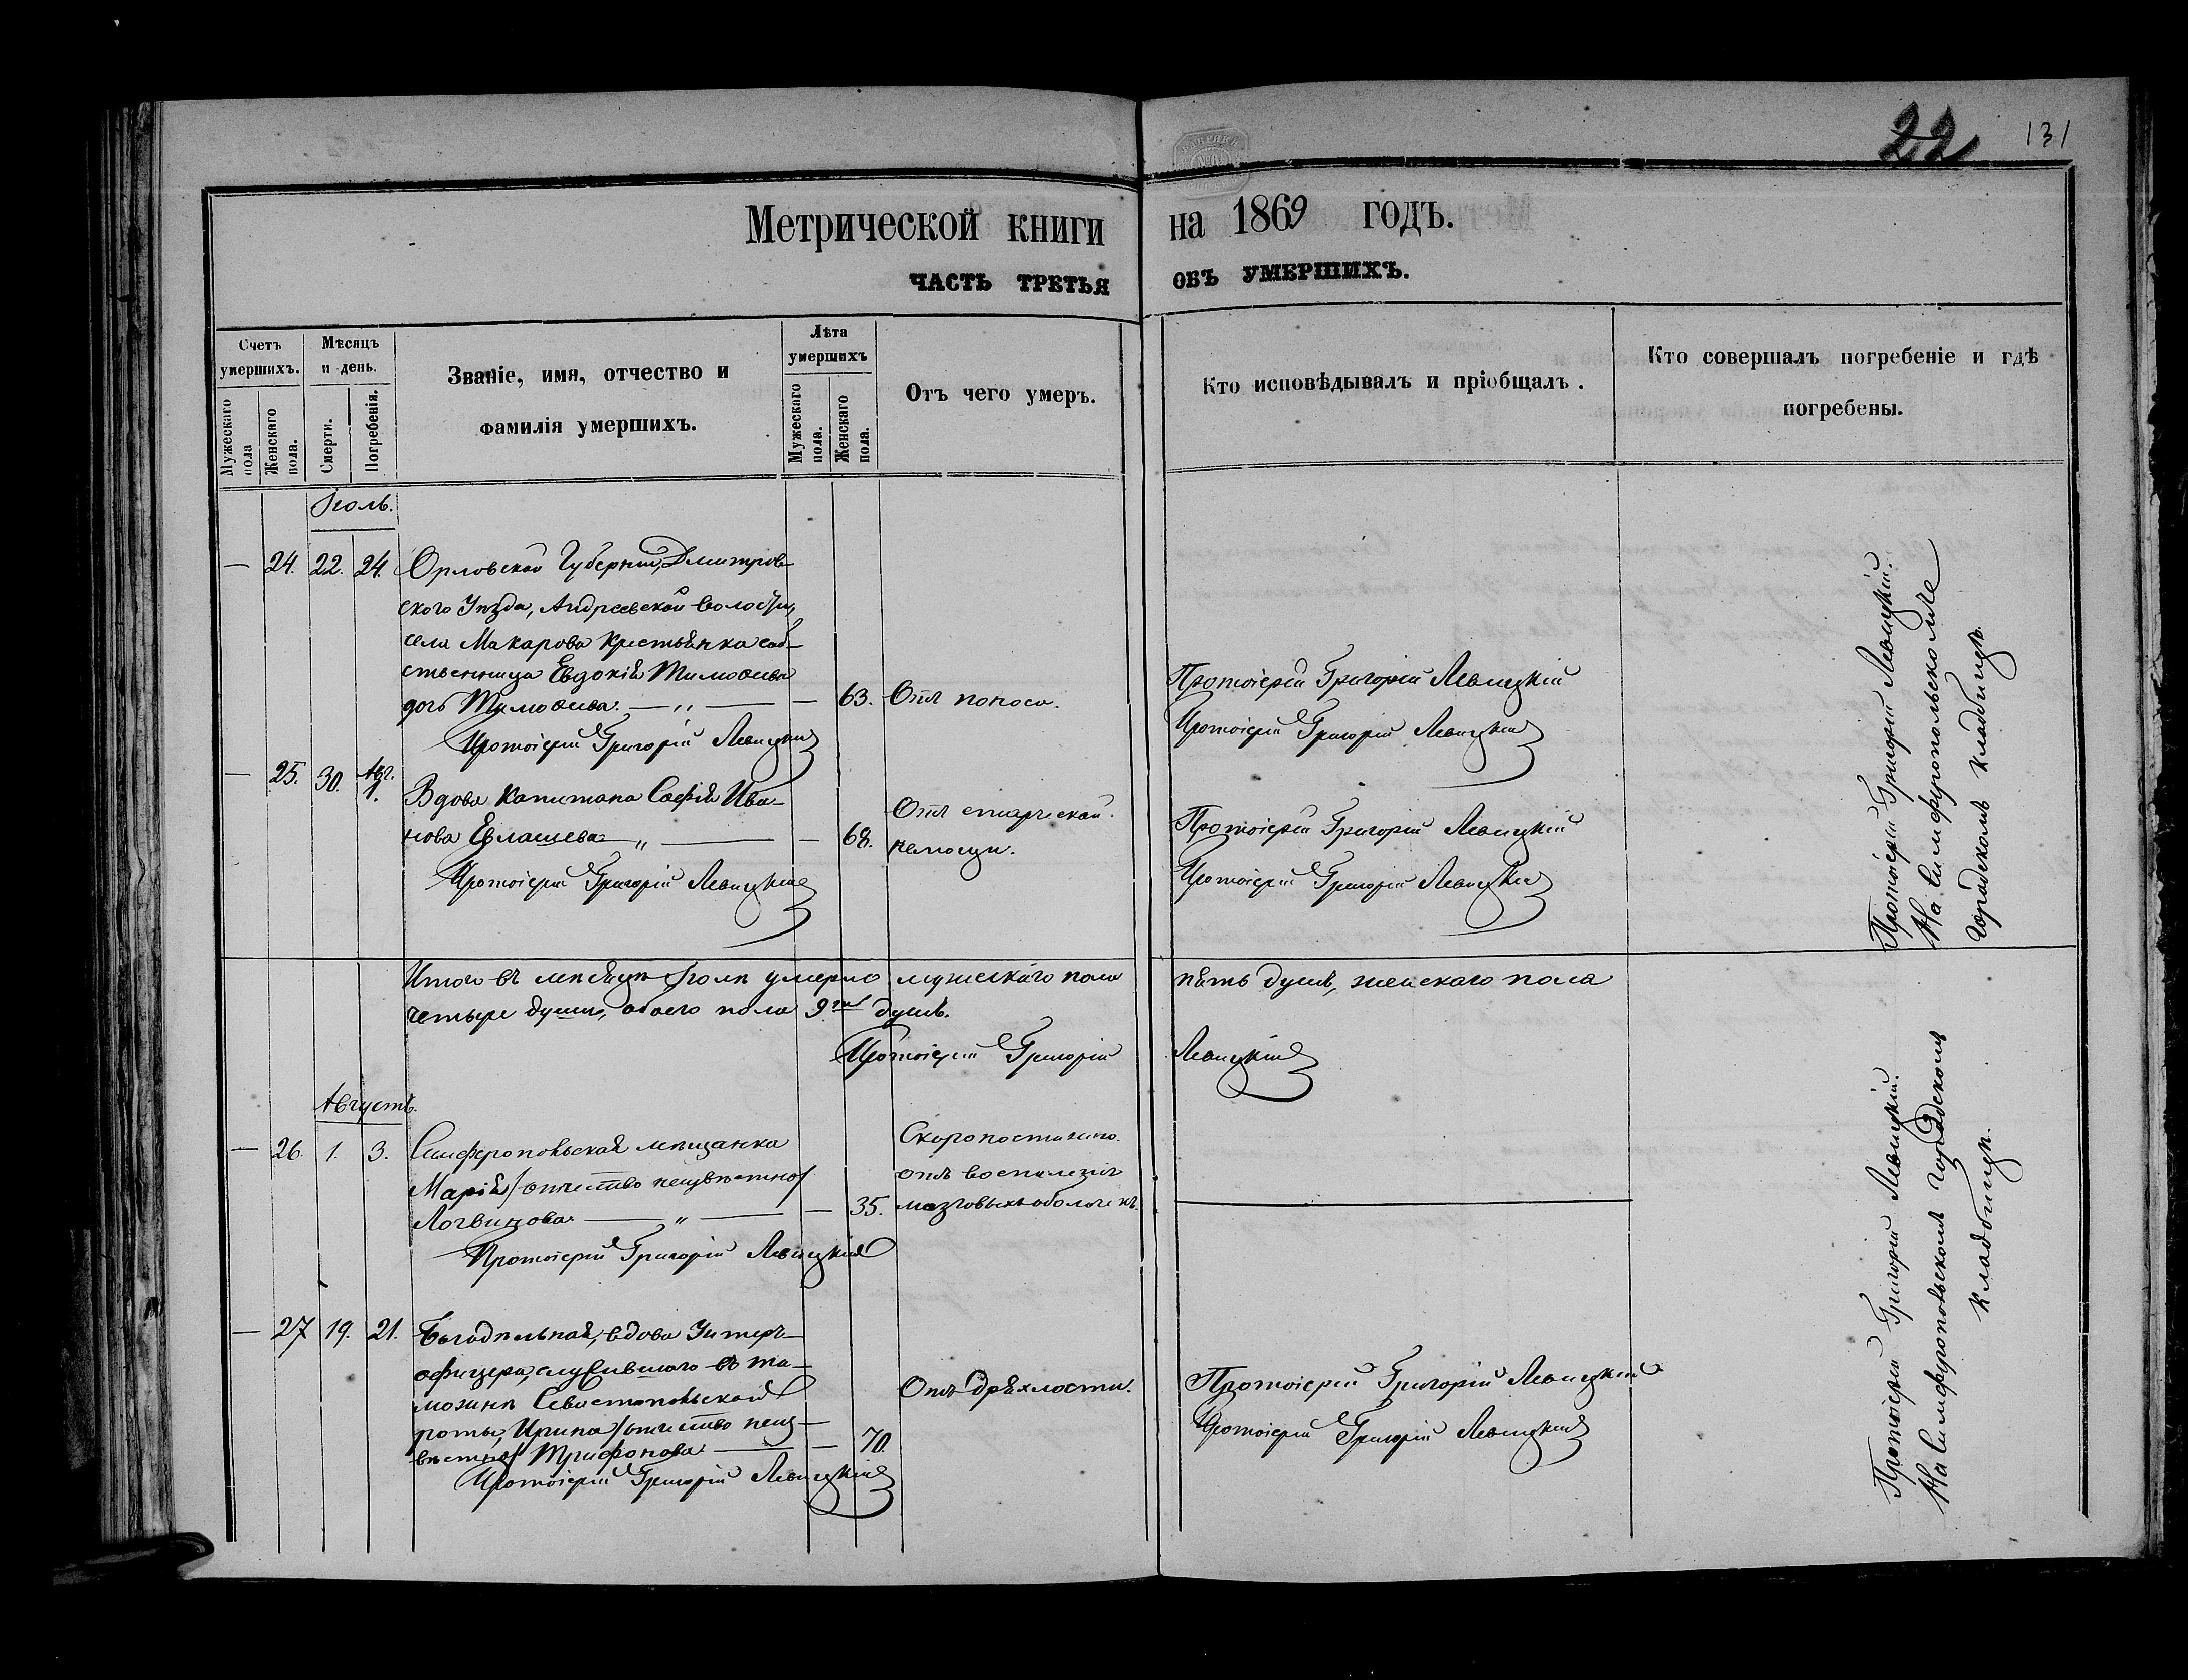 22
131
Метрической книги на 1869 годъ.
ЧАСТЬ ТРЕТЬЯ ОБЪ УМЕРШИХЪ.
Счетъ умершихъ.
Мужескаго пола
Женскаго пола.
Мѣсяцъ и день.
Смерти.
Погребенія.
Званіе, имя, отчество и
фамилія умершихъ.
Лѣта умершихъ
Мужескаго пола.
Женскаго пола.
Отъ чего умеръ.
Кто исповѣдывалъ и пріобщалъ.
Кто совершалъ погребеніе и гдѣ
погребены.
Іюль.
— 24. 22. 24. Орловской Губерніи, Дмитров-
ского Уѣзда, Андреевской волости,
села Макарова крестьянка соб-
ственница Евдокія Тимофеева
дочь Тимофеева. — „ — — 63. Отъ поноса.
Протоіерей Григорій Левицкій
Протоіерей Григорій Левицкій
Протоіерей Григорій Левицкій
— 25. 30. Авг. 1. Вдова капитана Софія Ива-
нова Евлашева — „ — — 68. Отъ старческой
немощи.
Протоіерей Григорій Левицкій
Протоіерей Григорій Левицкій
Протоіерей Григорій Левицкій
Протоіерей Григорій Левицкій.
На Симферопольскомъ
городскомъ кладбищѣ.
Итого въ мѣсяцѣ Іюлѣ умерло мужескаго пола пять душъ, женскаго пола
четыре души, обоего пола 9ть душъ.
Протоіерей Григорій Левицкій
Августъ.
— 26. 1. 3. Симферопольская мѣщанка
Марія /отчество неизвѣстно/
Логвинова — „ — — 35. Скоропостижно
отъ воспаленія
мозговыхъ оболочекъ.
Протоіерей Григорій Левицкій
— 27 19. 21. Богадѣльная, вдова Унтеръ-
офицера, служившаго въ та-
можнѣ Севастопольской
роты, Ирина /отчество неиз-
вѣстно/ Трифонова — — 70. Отъ дряхлости.
Протоіерей Григорій Левицкій
Протоіерей Григорій Левицкій
Протоіерей Григорій Левицкій
Протоіерей Григорій Левицкій.
На Симферопольскомъ городскомъ
кладбищѣ.